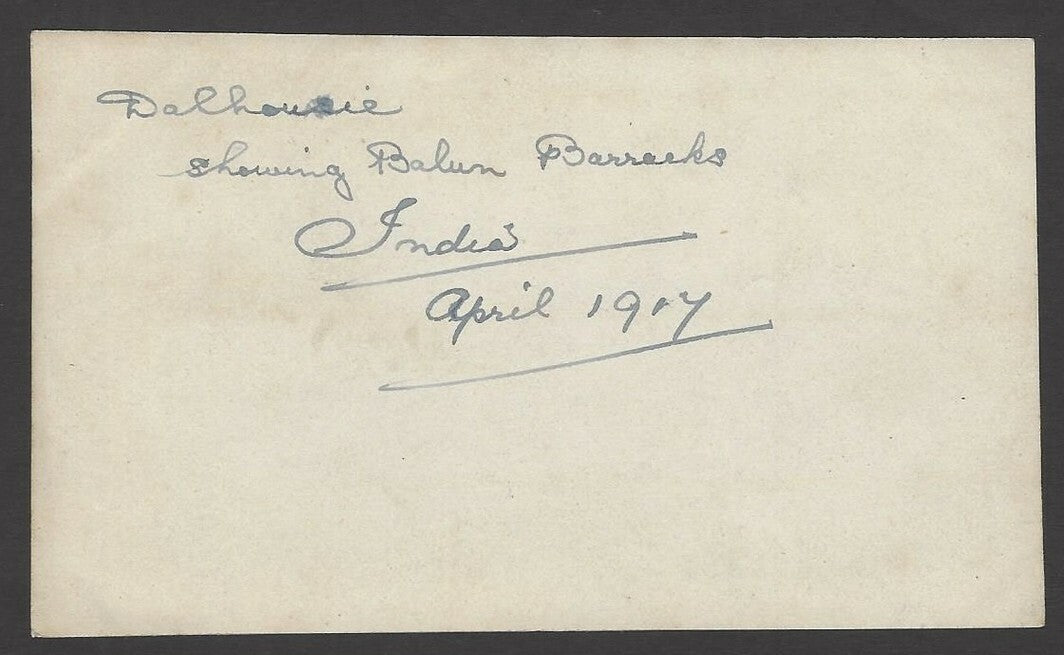 Dalhousie
showing Balun Barracks
India
April 1917